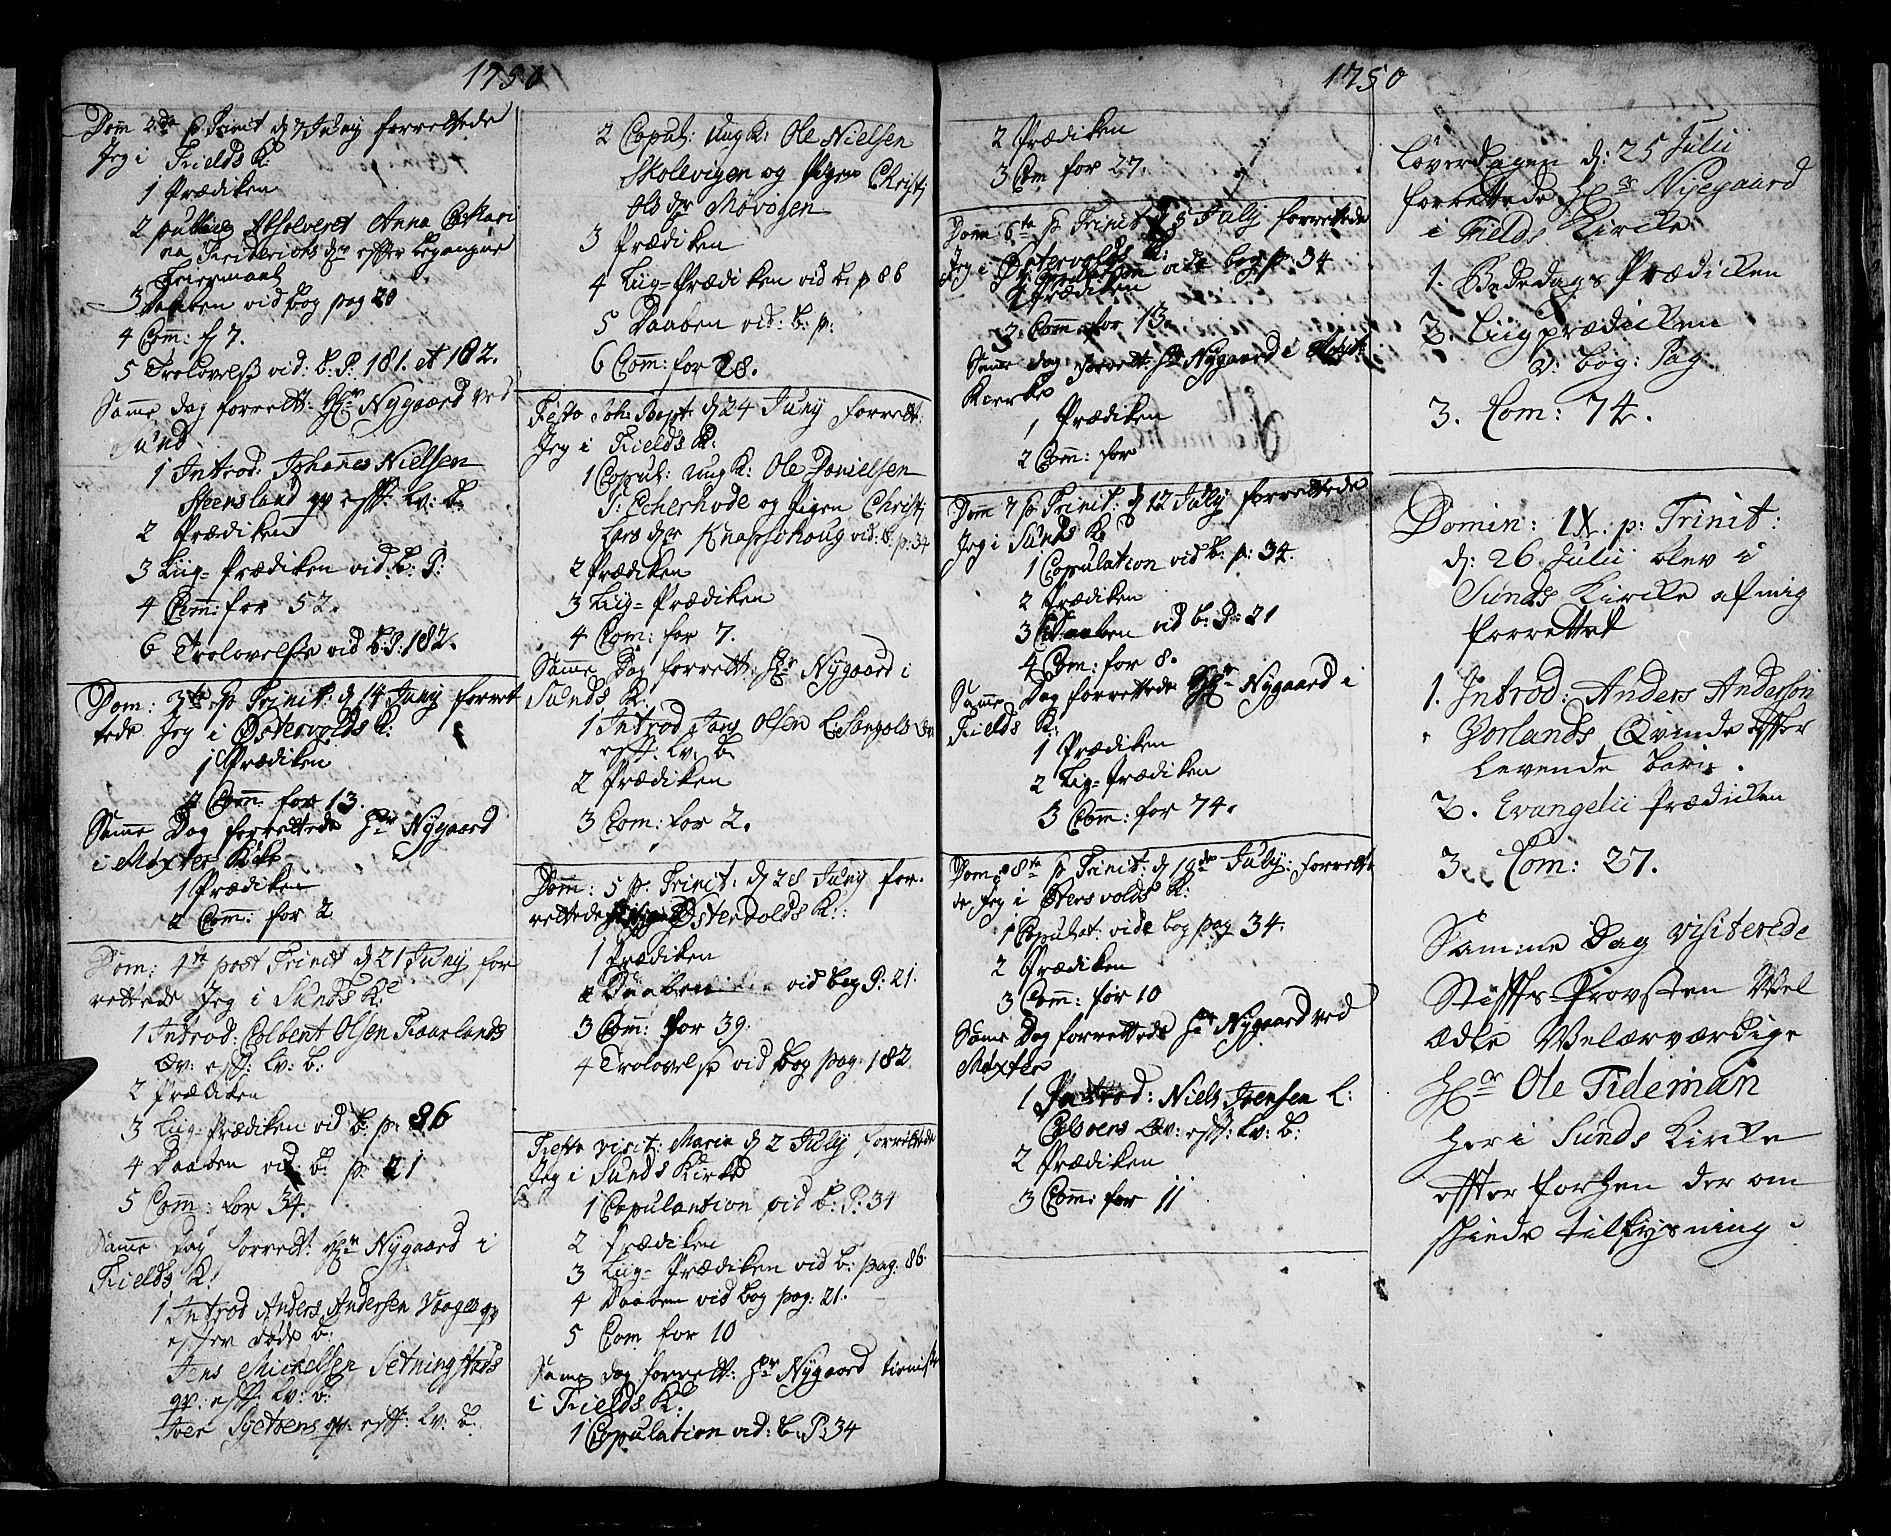 1750
Dom 2da p Trinit d 7 Juny forrettede
Jeg i Fields K:
1 Prædiken
2 publicq Absolveret Anna Catari
na Friderichs dr effter begangne
Leiermaal
3 Daaben vid bog pag 20
4 Com: f 7.
5 Trolovelse vid: b: P: 181. et 182.
Samme dag forrett: Hr Nygaard ved
Sund
1 Introd: Johannes Nielsen
Steensland qv eff: lv: b:
2 Prædiken
3 Liig-Prædiken vid b: P:
4 Com: for 52.
6 Trolovelse vid b: P: 182.
Dom: 3tie p Trinit: d 14 Juny forret
tede Jeg i Østervolds K:
1 Prædiken
2 Com for 13.
Samme Dag forrettede Hr Nygaard
i Møxter Kirke
1 Prædiken
2 Com: for 2
Dom: 4te post Trinit d 21 Juny for
rettede Jeg i Sunds K:
1 Introd: Colbent Olsen Kaurlands
Qv: eff: lv: b:
2 Prædiken
3 Liig-Prædiken vid b: p: 86
4 Daaben vid: b: p: 21
5 Com: for 34.
Samme Dag forrett: Hr Nygaard i
Fields K:
1 Introd Anders Andersen Vaages qv
effter døde b:
Jens Mickelsen Setningstads
qv: eff: lv: b:
Iver Syetvens qv: eff: lv: b:
2 Copul: Ung K: Ole Nielsen
Skolvigen og Pigen Christj
Ols dr Møvogen
3 Prædiken
4 Liig-Prædiken vid b: p 86
5 Daaben vid: b: p:
6 Com: for 28.
Festo Joh: Bapt: d 24 Juny forrett
Jeg i Fields K:
1 Copul: ung K: Ole Danielsen
T: Echerhode og Pigen Christj
Lars dr Knapschoug vid: b: p: 34
2 Prædiken
3 Liig-Prædiken
4 Com: for 7.
Samme Dag forrett: Hr Nygaard i
Sunds K:
1 Introd Jans Olsen L: Sangolts Qv
eff: lv: b:
2 Prædiken
3 Com: for 2.
Dom: 5 p: Trinit: d 28 Juny for-
rettede Jeg i Østervolds K:
1 Prædiken
2 Daaben vid bog P: 21.
3 Com: for 39.
4 Trolovelse vid bog pag: 182
Festo visit: Mariæ d 2 July forrettede
Jeg i Sunds Kirke
1 Copulantion vid b: P: 34
2 Prædiken
3 Liig-Prædiken vid b: pag: 86
4 Daaben vid bog pag: 21.
5 Com for 10
Same dag forrett: Hr Nygaard
i Fields K:
1 Copulation vid: b: P: 34
1750
2 Prædiken
3 Com for 27.
Dom: 6te p Trinit d 5 July forrettede
Jeg i Østervolds K:
1 Copulation vide bog p: 34
2 Prædiken
3. Com: for 13.
Samme dag forrett: Hr Nygaard i Møxt:
Kierke
1 Prædiken
2 Com: for
Dom 7 p Trinit: d 12 July forrettede
Jeg i Sunds K:
1 Copulation vid b: p: 34.
2 Prædiken
3 Daaben vid b: P: 21
4 Com: for 8.
Samme Dag forrettede Hr Nygaard i
Fields K:
1 Prædiken
2 Liig-Prædiken
3 Com: for 74.
Dom: 8te p Trinit: d 19de July: forrette
de Jeg i Østervolds K:
1 Copulat: vide bog pag 34.
2 Prædiken
3 Com: for 10
Same Dag forrettede Hr Nygaard ved
Møxter
1 Introd: Niels Ivensen L:
Colvens Qv: eff: lv: b:
2 Prædiken
3 Com: for 11
Løverdagen d: 25 Julii
forrettede Hr Nyegaard
i Fields Kircke
1. Bededags Prædicken
2. Liigprædicken
v: bog: Pag
3. Com: 74.
Domin: IX. p: Trinit:
d: 26 Julii blev i
Sunds Kircke af mig
forrettet
1. Introd: Anders Anderson
Vorlands Qvinde effter
levende barn.
2. Evangelii Prædicken
3. Com: 27.
Samme Dag visiterede
Stiffts-Provsten Wel
Ædle Velærværdige
Hr Ole Tideman
her i Sunds Kircke
effter forhen der om
skiede tillysning.